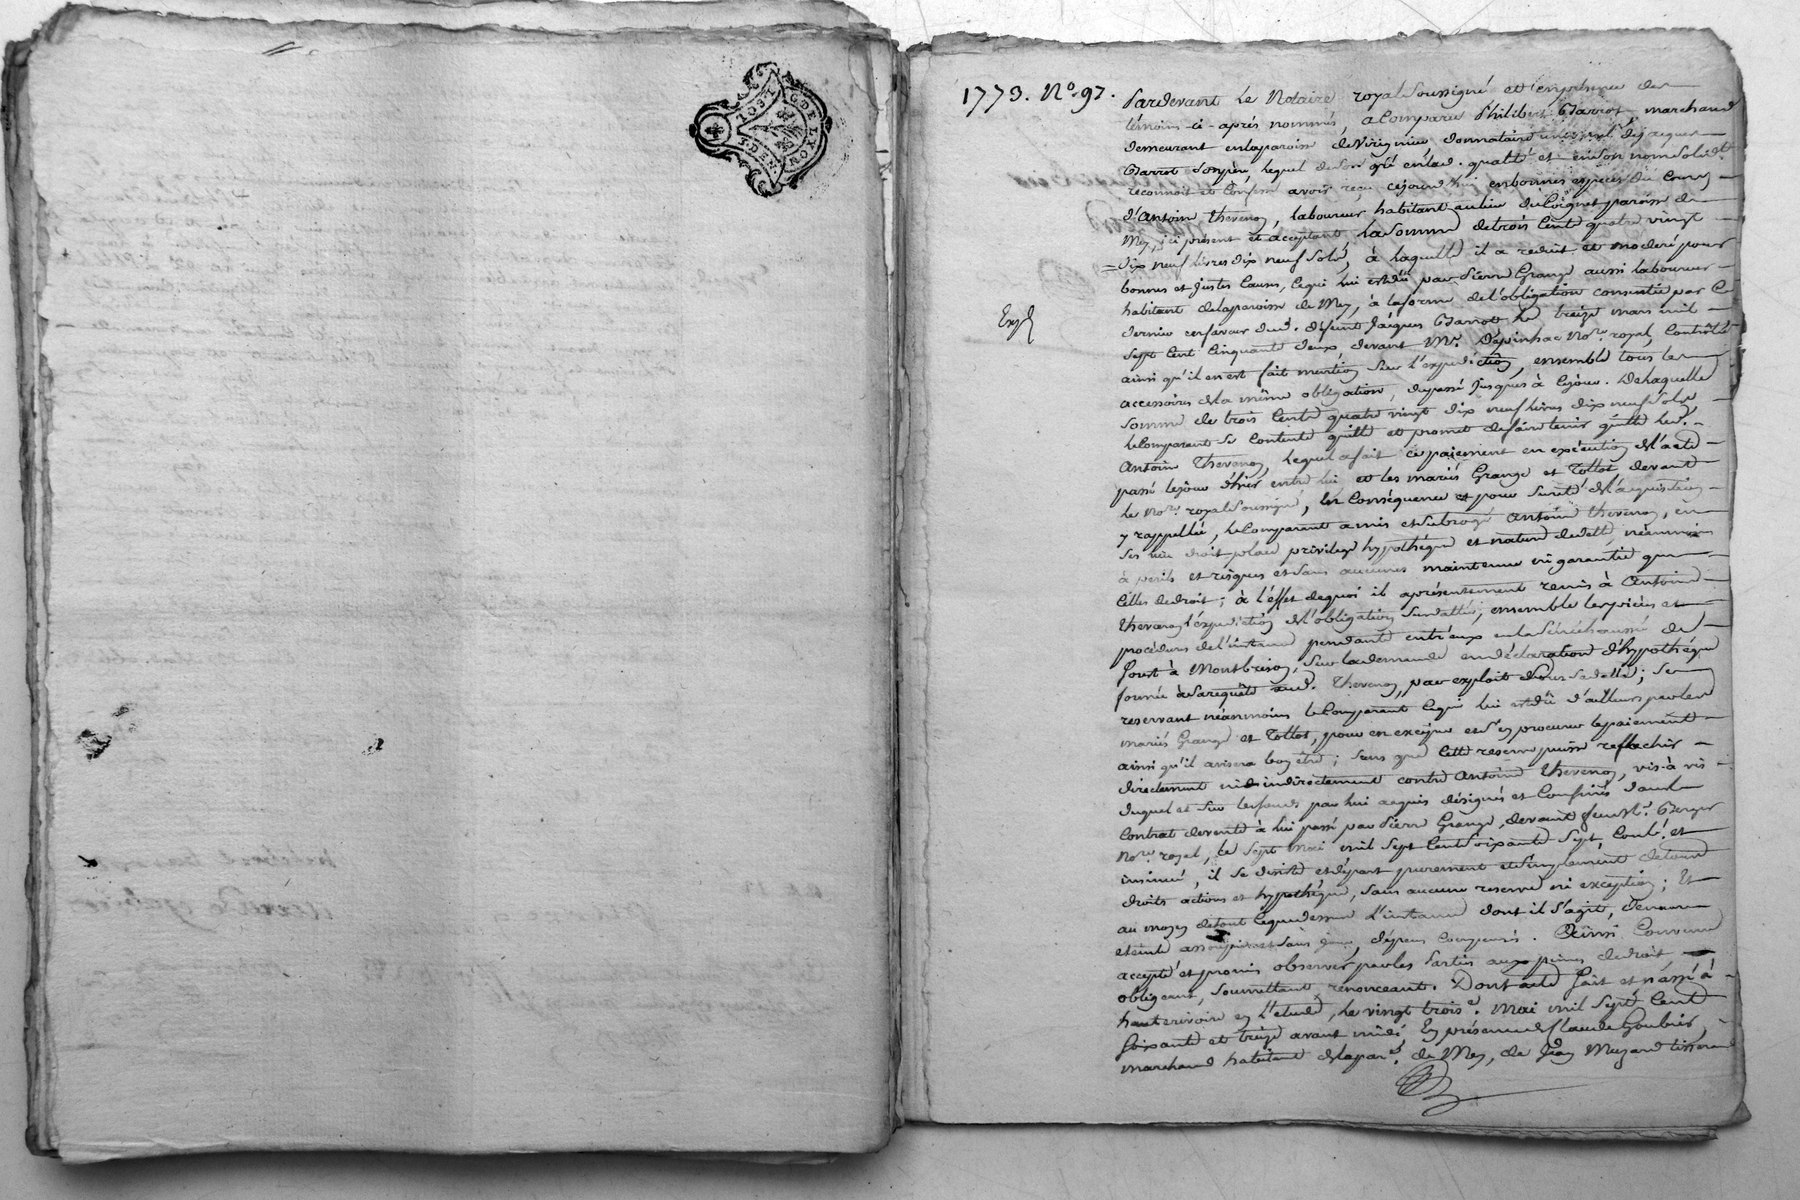 G. DE LYON
1. SOL.
4. DEN.
1773. N.º 97.
Pardevant Le Notaire royal soussigné et en présence des
témoins ci-après nommés, a Comparu Philibert Barrot, marchand
demeurant en la paroisse de Virignieu, donnataire universel de Jacques
Barrot son père, lequel de son gré en lad. qualité et en son nom solid.t
reconnoit et Confesse avoir reçu cejourd'hui en bonnes espèces du Cours
d'Antoine thevenon, laboureur habitant au lieu du Poignet paroisse de
Mey, ici présent et acceptant, La somme de trois Cents quatre vingt
dix neuf livres dix neuf sols, à laquelle il a reduit et modéré pour
bonnes et Justes Causes, Ce qui lui est dû par Pierre Grange aussi laboureur
habitant de la paroisse de Mey, à la forme de l'obligation consentie par Ce
dernier en faveur dud. défunt Jacques Barrot le treize mars mil
Exp.
sept Cent Cinquante deux devant M.e Depinhac No.re royal, Contrôlée
ainsi qu'il en est fait mention sur l'expédition, ensemble tous les
accessoires de la même obligation, du passé jusques à Cejour. De laquelle
somme de trois Cents quatre vingt dix neuf livres dix neuf sols
le Comparant se Contente quitte et promet de faire tenir quitte led.
Antoine thevenon, lequel a fait ce paiement en exécution de l'acte
passé le jour d'hier entre lui et les mariés Grange et Tollot, devant
le No.re royal soussigné, En Conséquence et pour sureté de l'aquisition
y rappellée, le Comparant a mis et subrogé Antoine thevenon, en
ses lieu droit place privilege hypothéque et nature de dette, néanmoins
à périls et risques et sans aucunes maintenue ni garantie que
Celles de droit; à l'effet de quoi il a présentement remis à Antoine
thevenon l'expédition de l'obligation surdattée, ensemble les pièces et
procédures de l'instance pendante entr'eux en la Sénéchaussée de
forest à Montbrison, sur la demande en déclaration d'hypothéque
formée à sa requête aud. thevenon, par exploit
reservant néanmoins le Comparant Ce qui lui est dû d'ailleurs par les
mariés Grange et Tollot, pour en exciper et s'en procurer le paiement
ainsi qu'il avisera bon être; sans que Cette reserve puisse reflechir
directement ni indirectement contre Antoine thevenon, vis-à-vis
duquel et sur les fonds par lui acquis désignés et Confinés dans le
Contrat de vente à lui passé par Pierre Grange, devant feu M.e Berger
No.re royal, le sept mai mil sept Cent soixante sept, Contr.é et
insinué, il se désiste et départ purement et simplement de tous
droits actions et hypothéque, sans aucune reserve ni exception; Et
au moyen de tout Ce que dessus L'instance dont il s'agit, demeure
eteinte assoupie et sans suite, dépens Compensés. Ainsi Convenu
accepté et promis observer par les Parties aux peines de droit
obligeant, soumettant, renonceant. Dont acte fait et passé à
haute rivoire en l'étude, le vingt trois.e Mai mil sept Cent
soixante et treize avant midi En présence de Claude Goubier,
marchand habitant de la par.se de Mey, de Jean Muzard tisserand